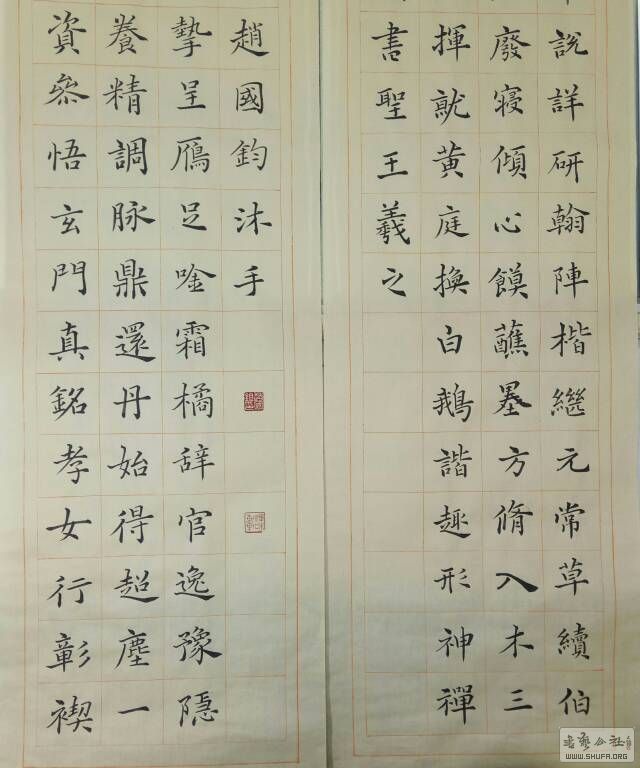 說詳研翰陣楷繼元常草續伯
廢寝傾心饃蘸墨方脩入木三
揮就黃庭換白鵝諧趣形神禪
書聖王羲之
資叅悟玄門真銘孝女行彰禊
養精調脉鼎還丹始得超塵一
摯呈鴈足唫霜橘辞官逸豫隱
趙國鈞沐手
書藝公社
WWW.SHUFA.ORG